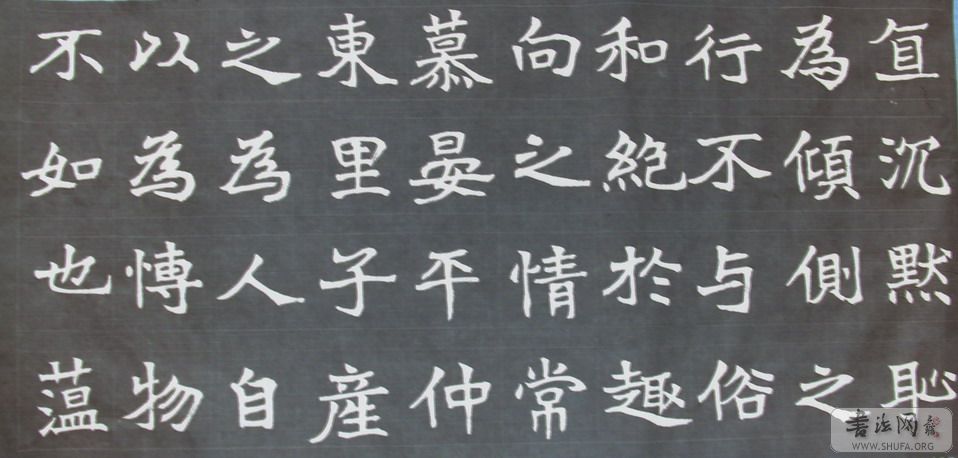 直沉默恥
為傾側之
行不与俗
和絶於趣
向之情常
慕晏平仲
東里子産
之為人自
以為愽物
不如也薀
書法网
WWW.SHUFA.ORG